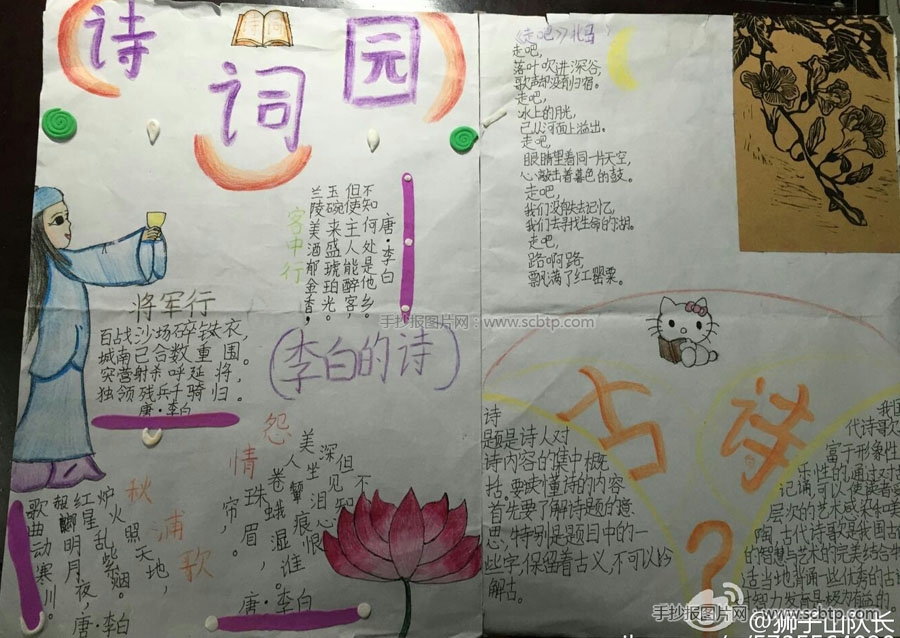 诗
词
园
客中行
唐·李白
兰陵美酒郁金香，
玉碗来盛琥珀光。
但使主人能醉客，
不知何处是他乡。
将军行
百战沙场碎铁衣，
城南已合数重围。
突营射杀呼延将，
独领残兵千骑归。
唐·李白
(李白的诗)
秋浦歌
炉火照天地，
红星乱紫烟。
明月夜，
歌曲动寒川。
唐·李白
怨情
美人卷珠帘，
深坐颦蛾眉。
但见泪痕湿，
不知心恨谁。
唐·李白
《走吧》北岛
走吧，
落叶吹进深谷，
歌声却没有归宿。
走吧，
冰上的月光，
已从河面上溢出。
走吧，
眼睛望着同一片天空，
心敲击着暮色的鼓。
走吧，
我们没有失去记忆，
我们去寻找生命的湖。
走吧，
路啊路，
飘满了红罂粟。
手抄报图片网：www.scbtp.com
古诗
?
诗
题是诗人对
诗内容的集中概
括。要读懂诗的内容
首先要了解诗题的意
思，特别是题目中的一
些字，保留着古义，不可以今
解古。
我国
代诗歌
富于形象性
乐性的，通过对古
记诵，可以使读者受
层次的艺术感染和美
陶，古代诗歌是我国古
的智慧与艺术的完美结合
适当地背诵一些优秀的古
对智力发展是极为有益的。
手抄报图片网：www.scbtp.com
@狮子山队长